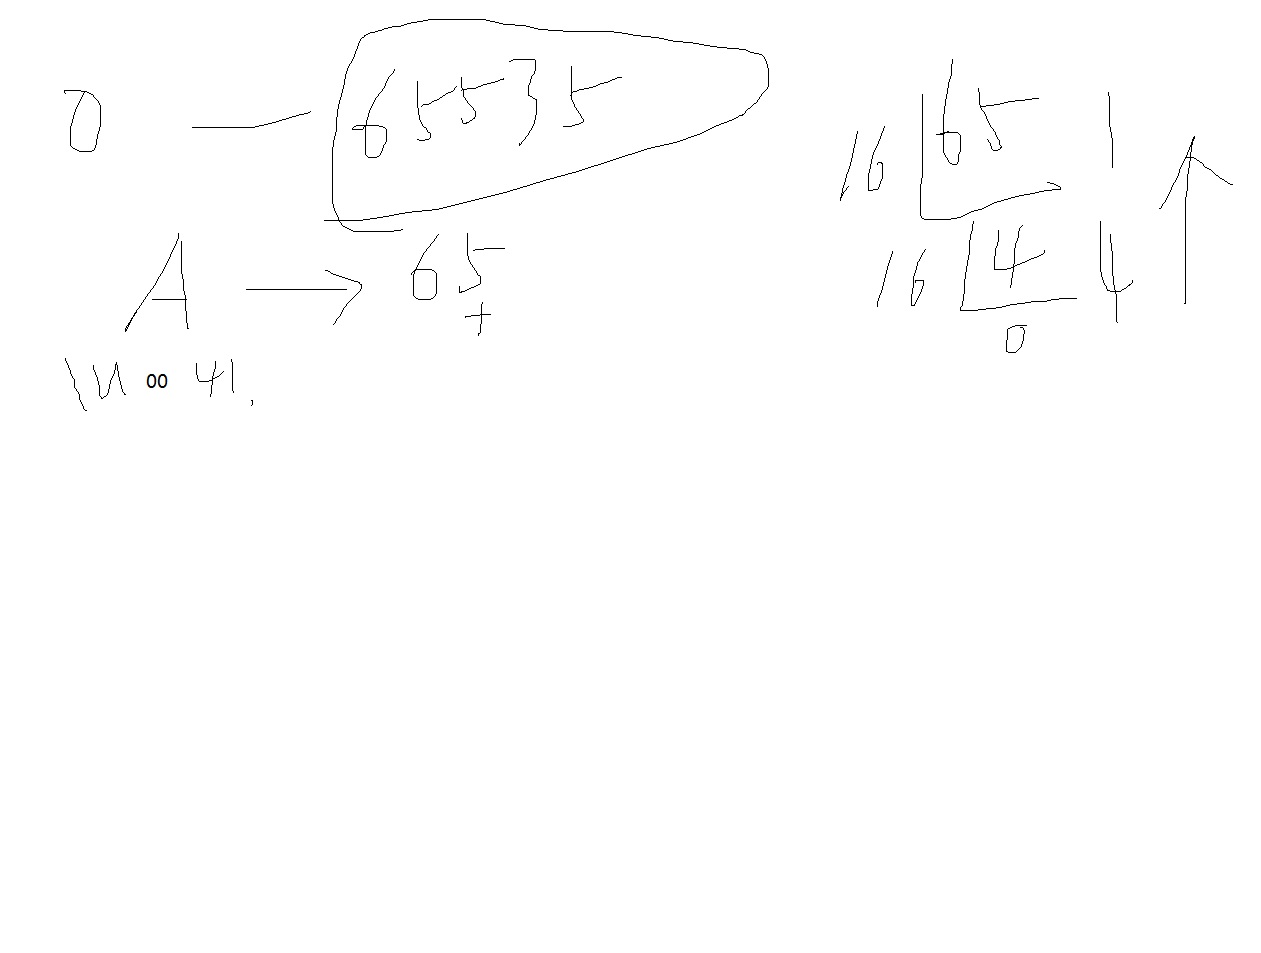 0 — 65535
A → 65
+
\u 00 41.
16 65 1
16 4 4
0